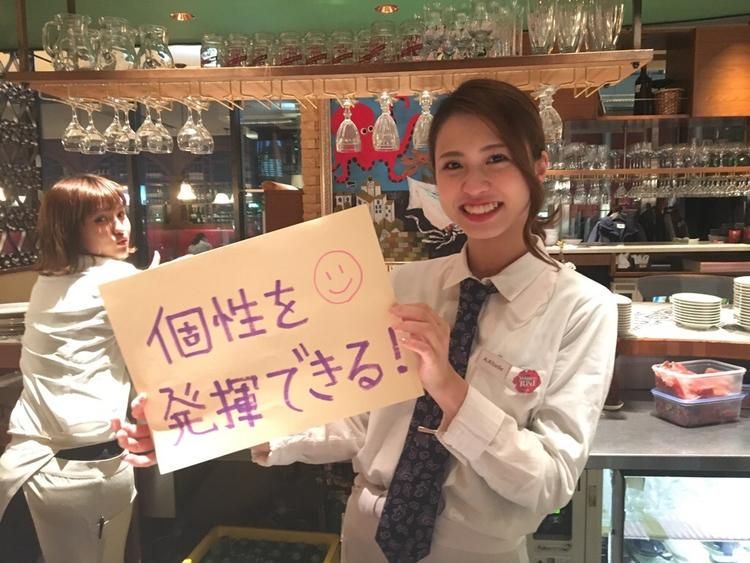 個性を
発揮できる!